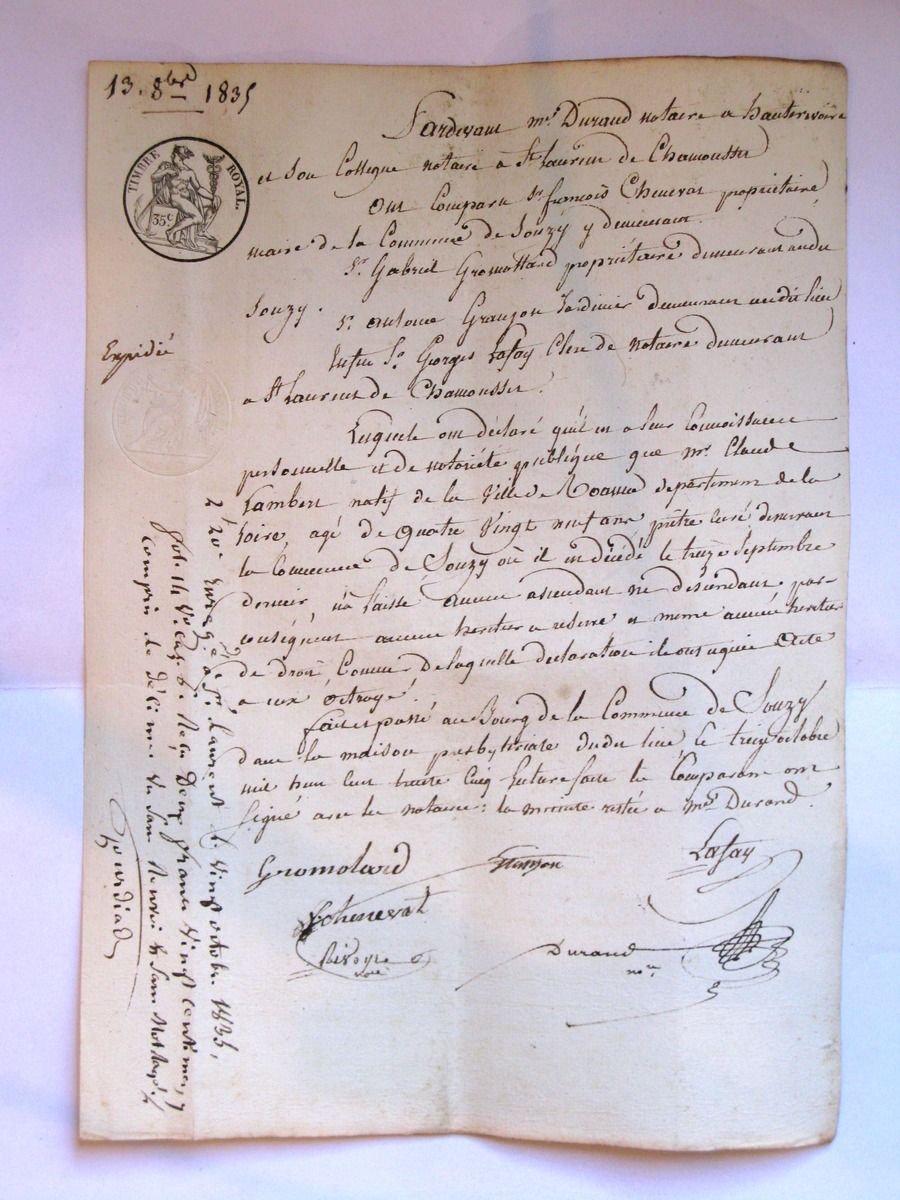 13. 8bre 1835
TIMBRE ROYAL.
35c
Pardevant mr. Durand notaire a hauterivoire
et son Collegue notaire a St Laurent de Chamousset
Ont Comparu Sr. francois Chenevat propriétaire
maire de la Commune de Souzy y demeurant.
Sr. Gabriel Gromollard propriétaire demeurant audit
Souzy.
Sr. antoine Granjon Jardinier demeurant audit lieu
Enfin Sr. Georges Lafay Clerc de notaire demeurant
a St Laurent de Chamousset.
Expédié
Lesquels ont déclaré qu'il est a leur Connoissance
personnelle et de notoriété publique que mr. Claude
Lambert natif de la Ville de Roanne departement de la
Loire, agé de quatre Vingt neuf ans prêtre curé desservant
la Commune de Souzy où il est décédé le treize Septembre
dernier, n'a laissé aucun ascendant ne descendant, par-
conséquent aucun heritier a reserve et meme aucun heritier
de droit, Comme de laquelle declaration ils ont requis Acte
a eux Octroyé.
fait et passé au Bourg de la Commune de Souzy
dans la maison presbyteriale dudit lieu, le treize octobre
mil huit cent trente Cinq lecture faite les Comparans ont
signé avec les notaires: la minute restée a mr. Durand.
Gromolard
Granjon
Lafay
Fchenevat
Rivoyre
nore
Durand
nore
Enregé a St. Laurent le vingt octobre 1835,
fol. 14 vo. Reçu Deux francs vingt centimes, y
compris le décime
Gourdiad